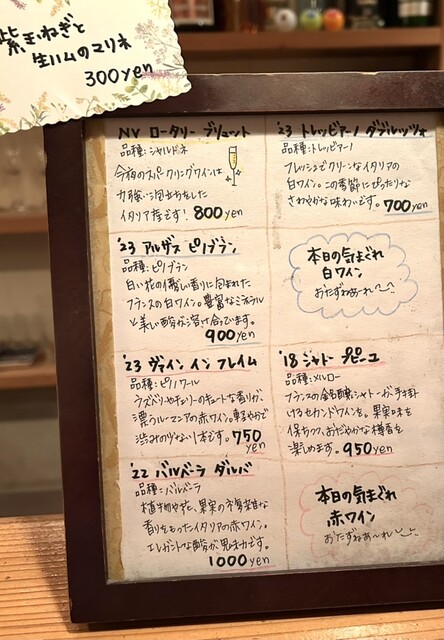 紫玉ねぎと
生ハムのマリネ
300yen
NV ロータリー ブリュット
品種:シャルドネ
今夜のスパークリングワインは
力強い泡立ちをした
イタリア産です! 800yen
'23 アルザス ピノブラン
品種:ピノブラン
白い花の優しい香りに包まれた
フランスの白ワイン。豊富なミネラル
と美しい酸が溶け合っています。
900yen
'23 ヴァイン イン フレイム
品種:ピノノワール
ラズベリーやチェリーのキュートな香りが
漂うルーマニアの赤ワイン。軽やかで
渋みの少ない1本です。750yen
'22 バルベーラ ダルバ
品種:バルベーラ
植物や花、果実の
香りをもったイタリアの赤ワイン。
エレガントな酸が魅力です。
1000yen
'23 トレッビアーノ ダブルッツォ
品種:トレッビアーノ
フレッシュでクリーンなイタリアの
白ワイン。この季節にぴったりな
さわやかな味わいです。700yen
本日の気まぐれ
白ワイン
おたずねあーれ〜
'18 シャトー プピーユ
品種:メルロー
フランスの銘醸シャトーが手掛
けるセカンドワインを。果実味を
保ちつつ、おだやかな樽香を
楽しめます。950yen
本日の気まぐれ
赤ワイン
おたずねあ〜れ〜